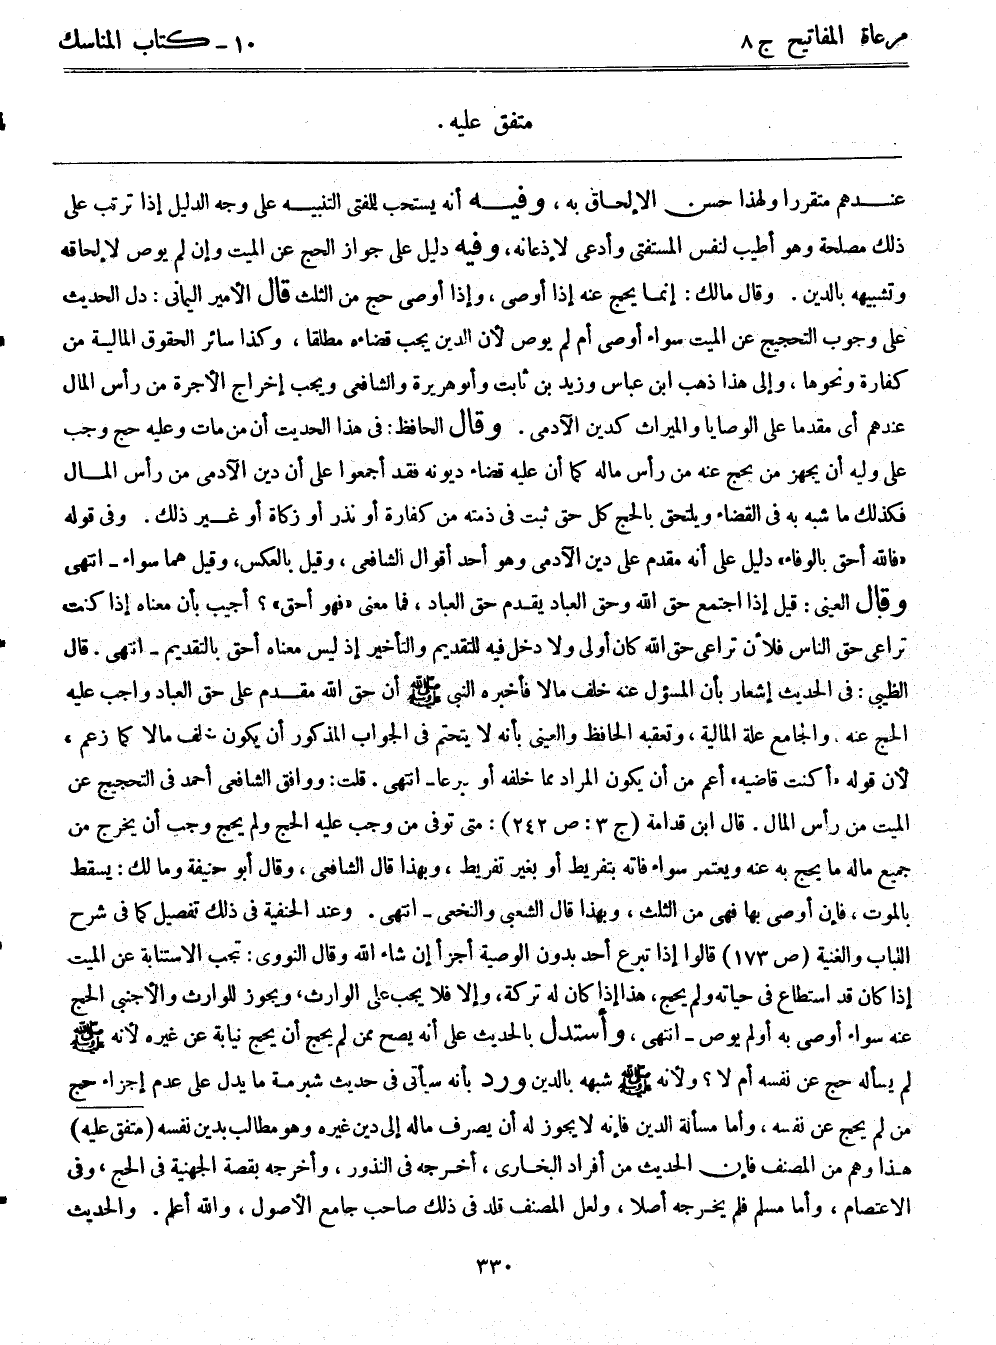 مرعاة المفاتيح ج ٨
١٠ - كتاب المناسك
متفق عليه .
عنـــدهم متقررا ولهذا حسن الإلحاق به ، وفيـــه أنه يستحب للمفتى التنبيـــه على وجه الدليل إذا ترتب على
ذلك مصلحة وهو أطيب لنفس المستفتى وأدعى لإذعانه، وفيه دليل على جواز الحج عن الميت وإن لم يوص لالحاقه
وتشبيهه بالدين . وقال مالك : إنمـا يحج عنه إذا أوصى ، وإذا أوصى حج من الثلث قال الأمير اليمانى : دل الحديث
على وجوب التحجيج عن الميت سواء أوصى أم لم يوص لأن الدين يجب قضاءه مطلقا ، وكذا سائر الحقوق الماليـة من
كفارة ونحوها ، وإلى هذا ذهب ابن عباس وزيد بن ثابت وأبوهريرة والشافعى ويجب إخراج الأجرة من رأس المال
عندهم أى مقدما على الوصايا والميراث كدين الآدمى . وقال الحافظ : فى هذا الحديث أن من مات وعليه حج وجب
على وليه أن يجهز من يحج عنه من رأس ماله كما أن عليه قضاء ديونه فقـد أجمعوا على أن دين الآدمى من رأس المـال
فكذلك ما شبه به فى القضاء ويلتحق بالحج كل حق ثبت فى ذمته من كفارة أو نذر أو زكاة أو غـــير ذلك . وفى قوله
«فالله أحق بالوفاء» دليل على أنه مقدم على دين الآدمى وهو أحد أقوال الشافعى ، وقيل بالعكس، وقيل هما سواء ـ انتهى
وقال العينى : قيل إذا اجتمع حق الله وحق العباد يقـدم حق العباد ، فما معنى «فهو أحق» ؟ أجيب بأن معناه إذا كنت
تراعى حق الناس فلأن تراعى حق الله كان أولى ولا دخل فيه للتقديم والتأخير إذ ليس معناه أحق بالتقديم ـ انتهى . قال
الطيبى : فى الحديث إشعار بأن المسؤل عنه خلف مالا فأخبره النبى ﷺ أن حق الله مقـدم على حق العباد واجب عليه
الحج عنه . والجامع علة المالية ، وتعقبه الحافظ والعينى بأنه لا يتحتم فى الجواب المذكور أن يكون خلف مالا كما زعم ،
لأن قوله «أكنت قاضيه» أعم من أن يكون المراد مما خلفه أو تبرعا ـ انتهى . قلت : ووافق الشافعى أحمد فى التحجيج عن
الميت من رأس المال . قال ابن قدامة (ج ٣ : ص ٢٤٢) : متى توفى من وجب عليه الحج ولم يحج وجب أن يخرج من
جميع ماله ما يحج به عنه ويعتمر سواء فاته بتفريط أو بغير تفريط ، وبهذا قال الشافعى ، وقال أبو حنيفة ومالك : يسقط
بالموت ، فإن أوصى بها فهى من الثلث ، وبهذا قال الشعبى والنخعى ـ انتهى . وعند الحنفية فى ذلك تفصيل كما فى شرح
اللباب والغنية (ص ١٧٣) قالوا إذا تبرع أحد بدون الوصية أجزأ إن شاء الله وقال النووى : تجب الاستنابة عن الميت
إذا كان قد استطاع فى حياته ولم يحج، هذا إذا كان له تركة، وإلا فلا يجب على الوارث، ويجوز للوارث والأجنبى الحج
عنه سواء أوصى به أولم يوص ـ انتهى ، وأستدل بالحديث على أنه يصح ممن لم يحج أن يحج نيابة عن غيره لأنه ﷺ
لم يسأله حج عن نفسه أم لا ؟ ولأنه ﷺ شبهه بالدين ورد بأنه سيأتى فى حديث شبرمة ما يدل على عدم إجزاء حج
من لم يحج عن نفسه ، وأما مسألة الدين فإنه لا يجوز له أن يصرف ماله إلى دين غيره وهو مطالب بدين نفسه (متفق عليه)
هـذا وهم من المصنف فإن الحديث من أفراد البخـارى ، أخـرجه فى النذور ، وأخرجه بقصة الجهنية فى الحج ، وفى
الاعتصام ، وأما مسلم فلم يخـرجه أصلا ، ولعل المصنف قلد فى ذلك صاحب جامع الأصول ، والله أعلم . والحديث
٣٣٠